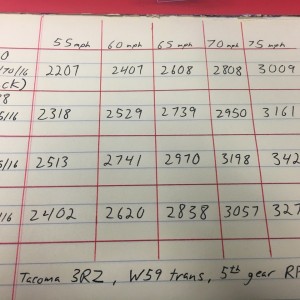 55 mph 60 mph 65 mph 70 mph 75 mph
0
/70/16 2207 2407 2608 2808 3009
ck)
8
5/16 2318 2529 2739 2950 3161
5/16 2513 2741 2970 3198 342
/16 2402 2620 2838 3057 327
Tacoma 3RZ, W59 trans, 5th gear RP